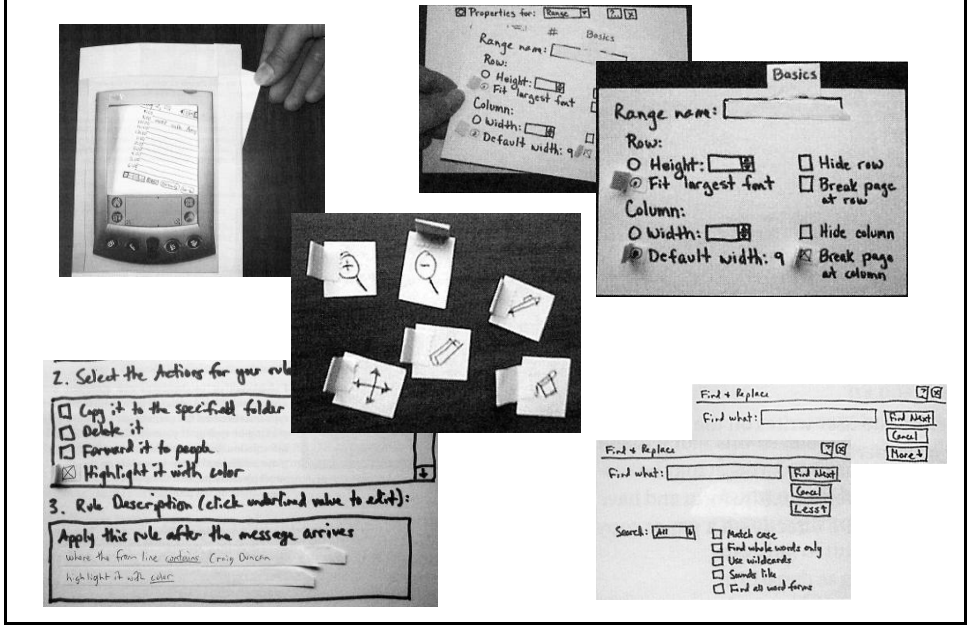 Properties for: Range ? X
# Basics
Range name:
Row:
Height:
Fit largest font
Column:
Width:
Default width: 9
Basics
Range name:
Row:
Height:
Hide row
Fit largest font
Break page
at row
Column:
Width:
Hide column
Default width: 9
Break page
at column
+
-
2. Select the Actions for your rule
Copy it to the specified folder
Delete it
Forward it to people
Highlight it with color
3. Rule Description (click underlined value to edit):
Apply this rule after the message arrives
where the from line contains Craig Duncan
highlight it with color
Find & Replace ? X
Find what: Find Next
Cancel
More
Find & Replace ? X
Find what: Find Next
Cancel
Less
Search: All
Match case
Find whole words only
Use wildcards
Sounds like
Find all word forms